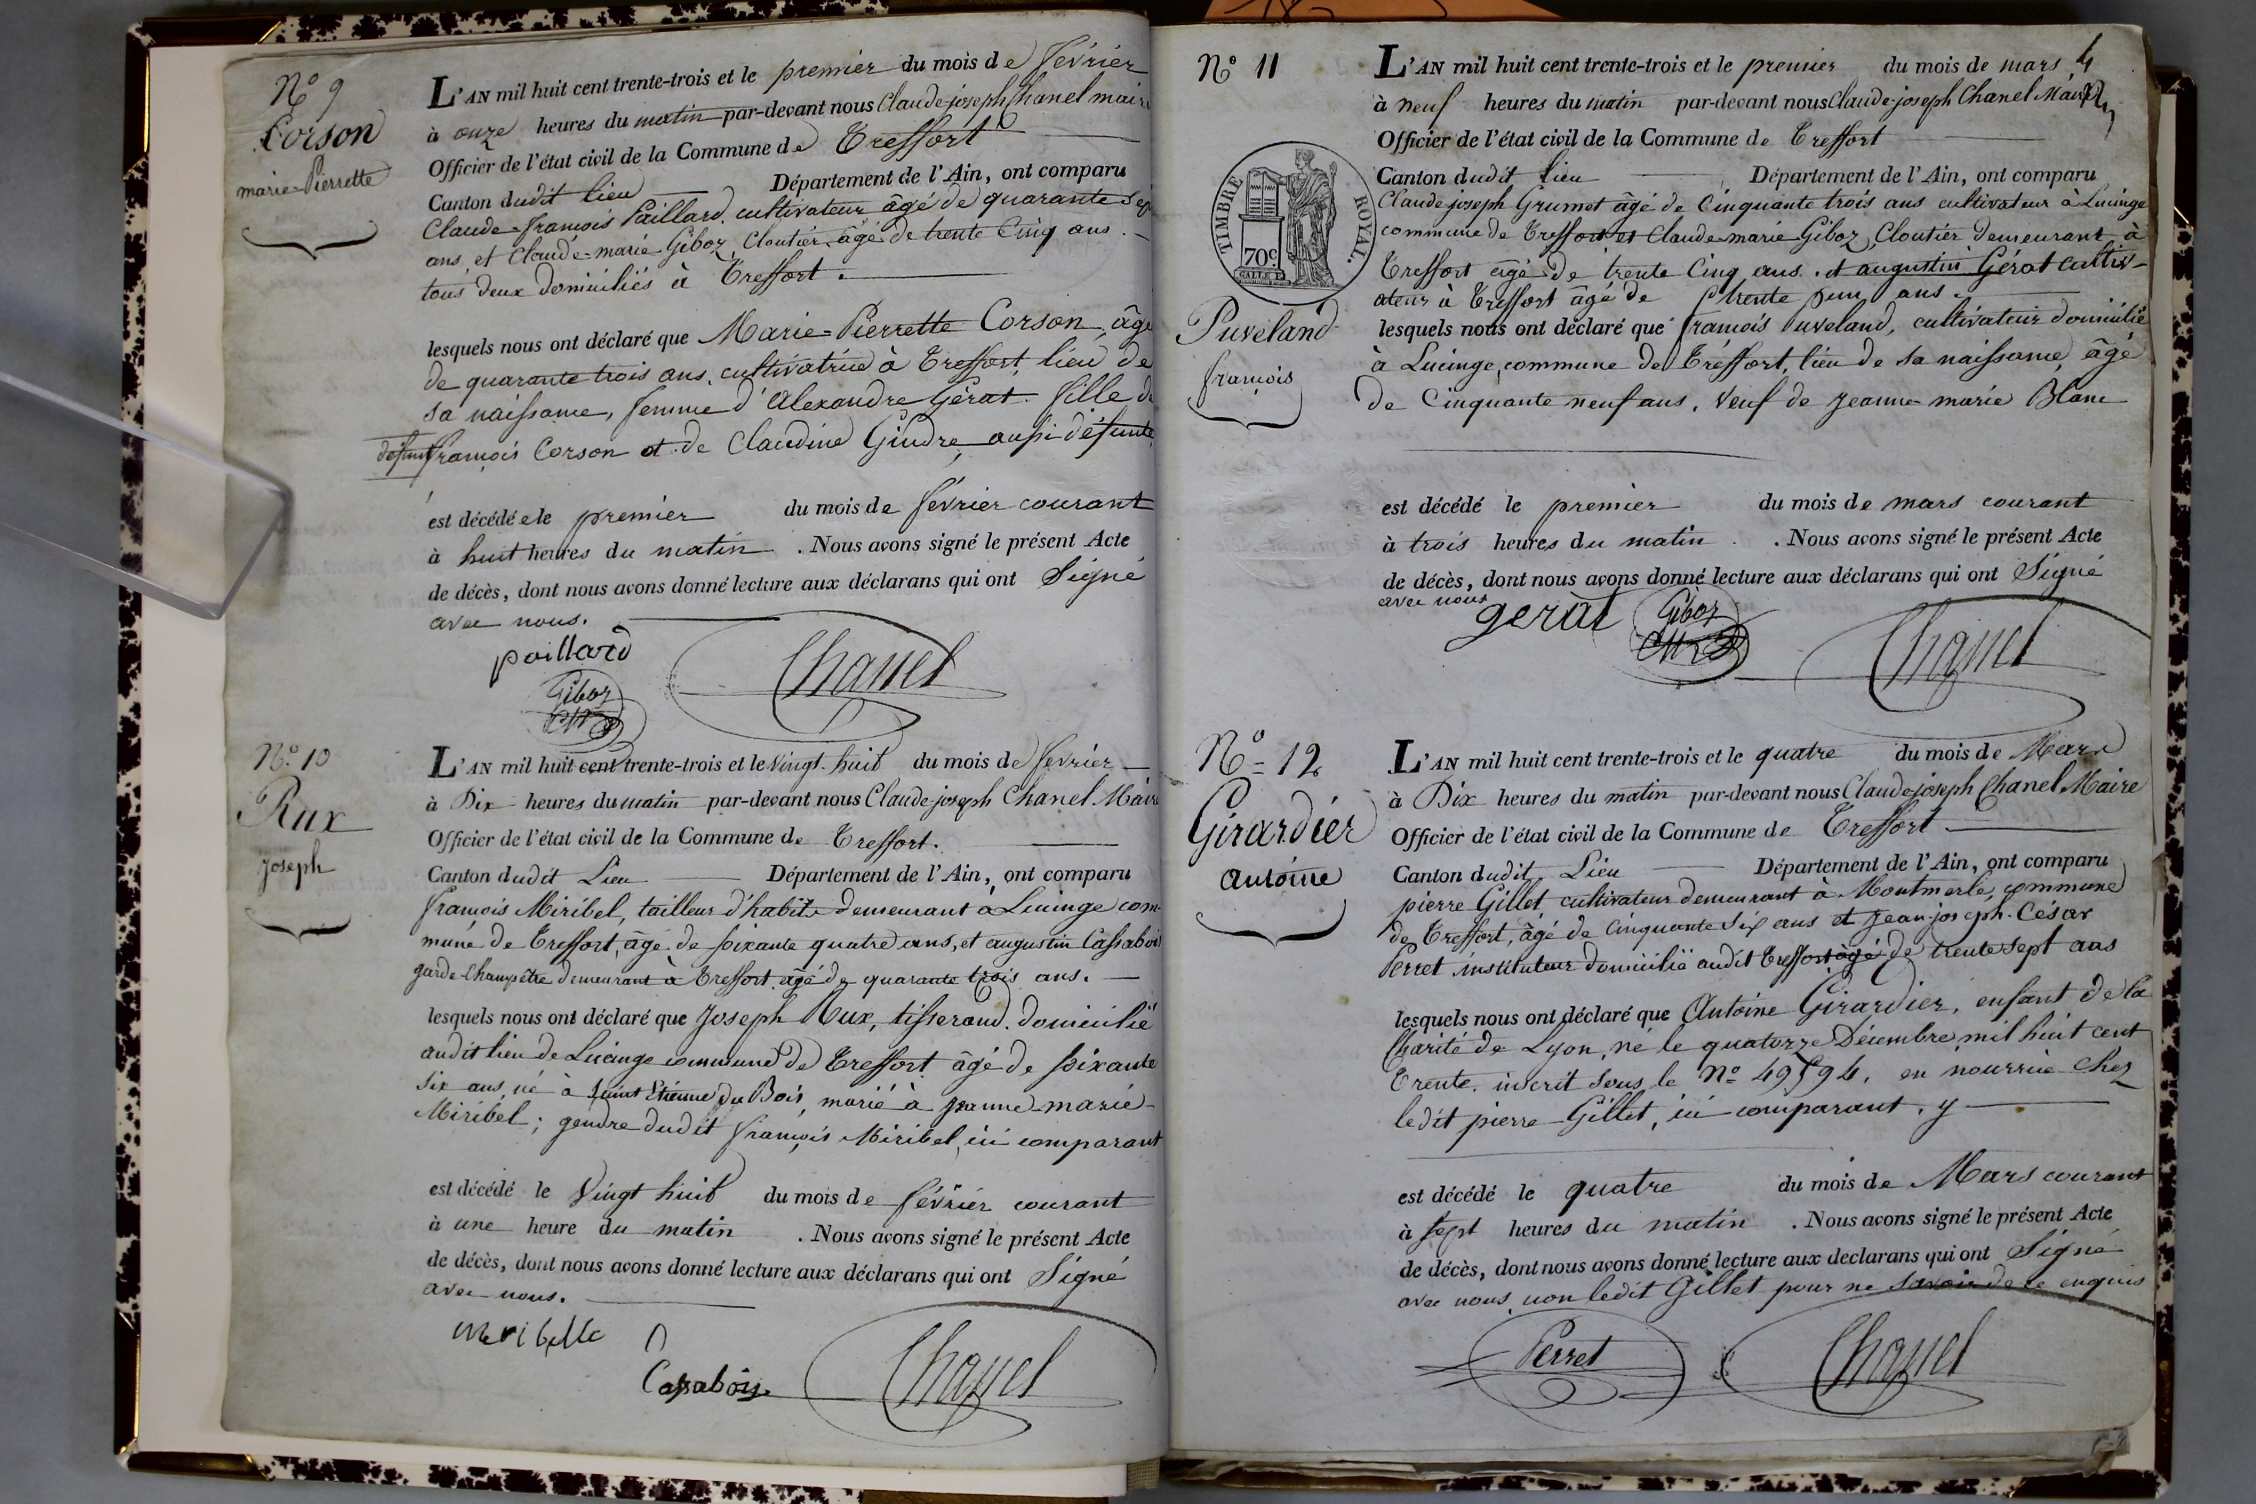 N° 9
Corson
marie-Pierrette
L'AN mil huit cent trente-trois et le premier du mois de février
à onze heures du matin par-devant nous Claude-joseph Chanel maire
Officier de l'état civil de la Commune de Treffort
Canton dudit lieu Département de l'Ain, ont comparu
Claude-françois Paillard, cultivateur âgé de quarante sept
ans, et Claude-marie Giboz, Cloutier, âgé de trente Cinq ans.
tous deux domiciliés à Treffort.
lesquels nous ont déclaré que Marie-Pierrette Corson, âgé
de quarante trois ans, cultivatrice à Treffort, lieu de
sa naissance, femme d'Alexandre Gérat. fille de
défunt françois Corson et de Claudine Gindre, aussi défunte
est décédée le premier du mois de février courant
à huit heures du matin. Nous avons signé le présent Acte
de décès, dont nous avons donné lecture aux déclarans qui ont Signé
avec nous.
paillard
Giboz
Chanel
N° 10
Rux
joseph
L'AN mil huit cent trente-trois et le vingt-huit du mois de février
à Dix heures du matin par-devant nous Claude-joseph Chanel Maire
Officier de l'état civil de la Commune de Treffort.
Canton dudit Lieu Département de l'Ain, ont comparu
françois Miribel, tailleur d'habits demeurant à Lucinge com-
mune de Treffort, âgé de soixante quatre ans, et augustin Cassabois
garde-Champêtre demeurant à Treffort âgé de quarante trois ans.
lesquels nous ont déclaré que Joseph Rux, tisserand. domicilié
audit lieu de Lucinge commune de Treffort âgé de soixante
six ans, né à Saint Etienne du Bois, marié à jeanne-marie
Miribel; gendre dudit françois Miribel, ici comparant
est décédé le Vingt huit du mois de février courant
à une heure du matin. Nous avons signé le présent Acte
de décès, dont nous avons donné lecture aux déclarans qui ont Signé
avec nous.
meribelle
Cassabois
Chanel
4
N° 11
TIMBRE ROYAL.
70c
Puveland
françois
L'AN mil huit cent trente-trois et le premier du mois de mars
à neuf heures du matin par-devant nous Claude-joseph Chanel Maire
Officier de l'état civil de la Commune de Treffort
Canton dudit lieu Département de l'Ain, ont comparu
Claude joseph Grumet âgé de Cinquante trois ans cultivateur à Lucinge
commune de Treffort et Claude-marie Giboz, Cloutier demeurant à
Treffort âgé de trente Cinq ans. et augustin Gérat cultiv-
ateur à Treffort âgé de trente deux ans.
lesquels nous ont déclaré que françois Puveland, cultivateur domicilié
à Lucinge, commune de Tréffort, lieu de sa naissance, âgé
de Cinquante neuf ans, Veuf de jeanne-marie Blanc
est décédé le premier du mois de mars courant
à trois heures du matin. Nous avons signé le présent Acte
de décès, dont nous avons donné lecture aux déclarans qui ont Signé
avec nous
gerat
Giboz
Chanel
N° 12
Girardier
antoine
L'AN mil huit cent trente-trois et le quatre du mois de Mars
à Dix heures du matin par-devant nous Claude-joseph Chanel Maire
Officier de l'état civil de la Commune de Treffort
Canton dudit Lieu Département de l'Ain, ont comparu
pierre Gillet cultivateur demeurant à Montmerle, commune
de Treffort, âgé de Cinquante Six ans et jean-joseph-César
Perret instituteur domicilié audit Treffort âgé de trente sept ans
lesquels nous ont déclaré que Antoine Girardier, enfant de la
Charité de Lyon, né le quatorze Décembre mil huit cent
Trente, inscrit sous le N° 49594, en nourrice chez
ledit pierre Gillet, ici comparant, y
est décédé le quatre du mois de Mars courant
à sept heures du matin. Nous avons signé le présent Acte
de décès, dont nous avons donné lecture aux declarans qui ont Signé
avec nous non ledit Gillet pour ne savoir de ce enquis
Perret
Chanel